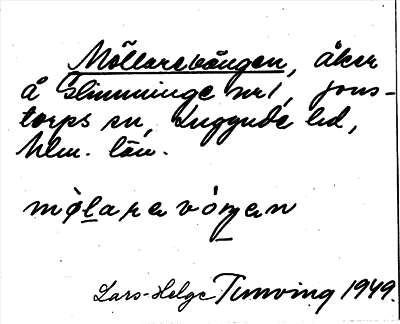 Möllarevången, åker
å Glimminge nr 1, Jons-
torps sn, Luggude hd,
Mlm. län.
møl̲arevóŋ̲en
Lars-Helge Tunving 1949.